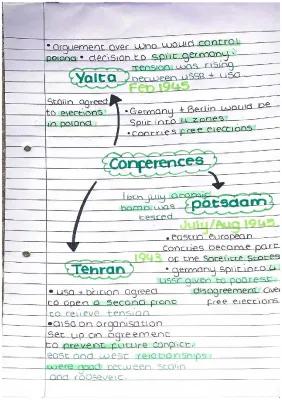 • arguement over who would control
poland • decision to split germany.
Tension was rising
between USSR + USA
Yalta
Feb 1945
Stalin agreed
to elections
in poland
• Germany + Berlin would be
split into 4 zones
• Contries free elections
Conferences
16th july atomic
bomb was
tested
potsdam
July/Aug 1945
• eastern european
Contries became part
of the Satelite States
• germany split into 4
USSR given to poorest
disagreement over
free elections
Tehran
1943
• USA + Britain agreed
to open a second front
to relieve tension
• also an organisation
set up on agreement
to prevent future conflict
east and west relationships
were good between Stalin
and roosevelt